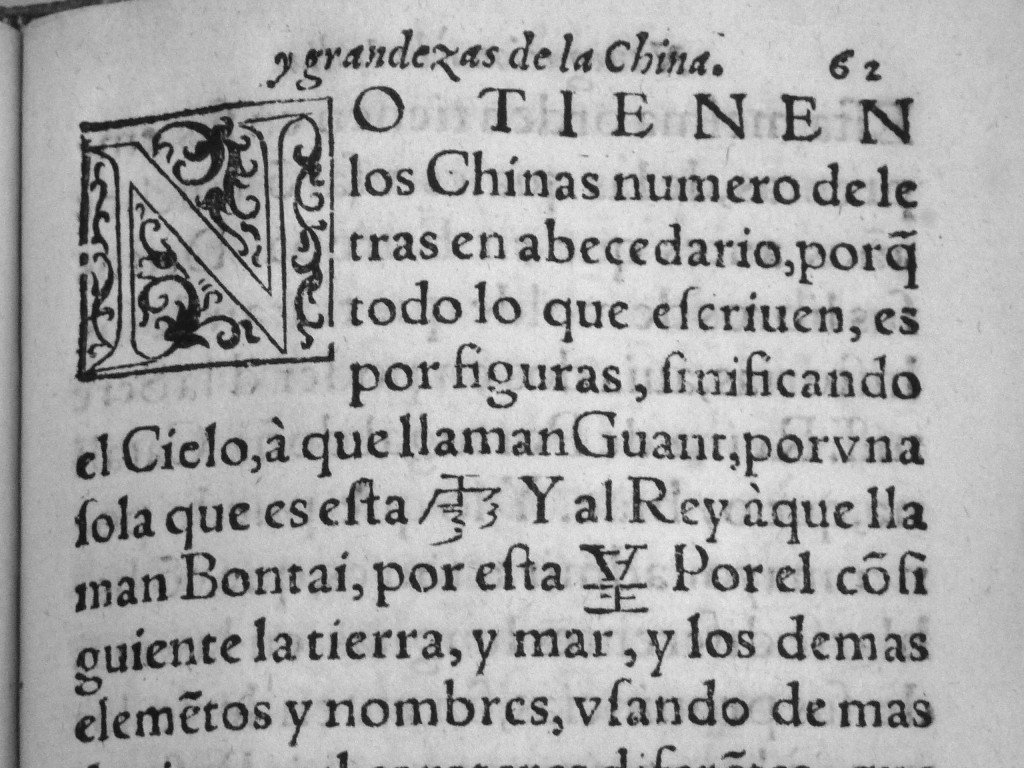 y grandezas de la China. 62
NO TIENEN
los Chinas numero de le
tras en abeçedario, porq̃
todo lo que eſcriuen, es
por figuras, ſinificando
el Cielo, à que llaman Guant, por vna
ſola que es eſta Y al Rey àque lla
man Bontai, por eſta Por el cõſi
guiente la tierra, y mar, y los demas
elemẽtos y nombres, vſando de mas